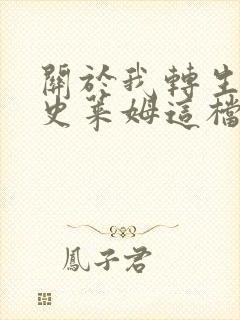 關於我轉生
史萊姆這檔
鳳子君